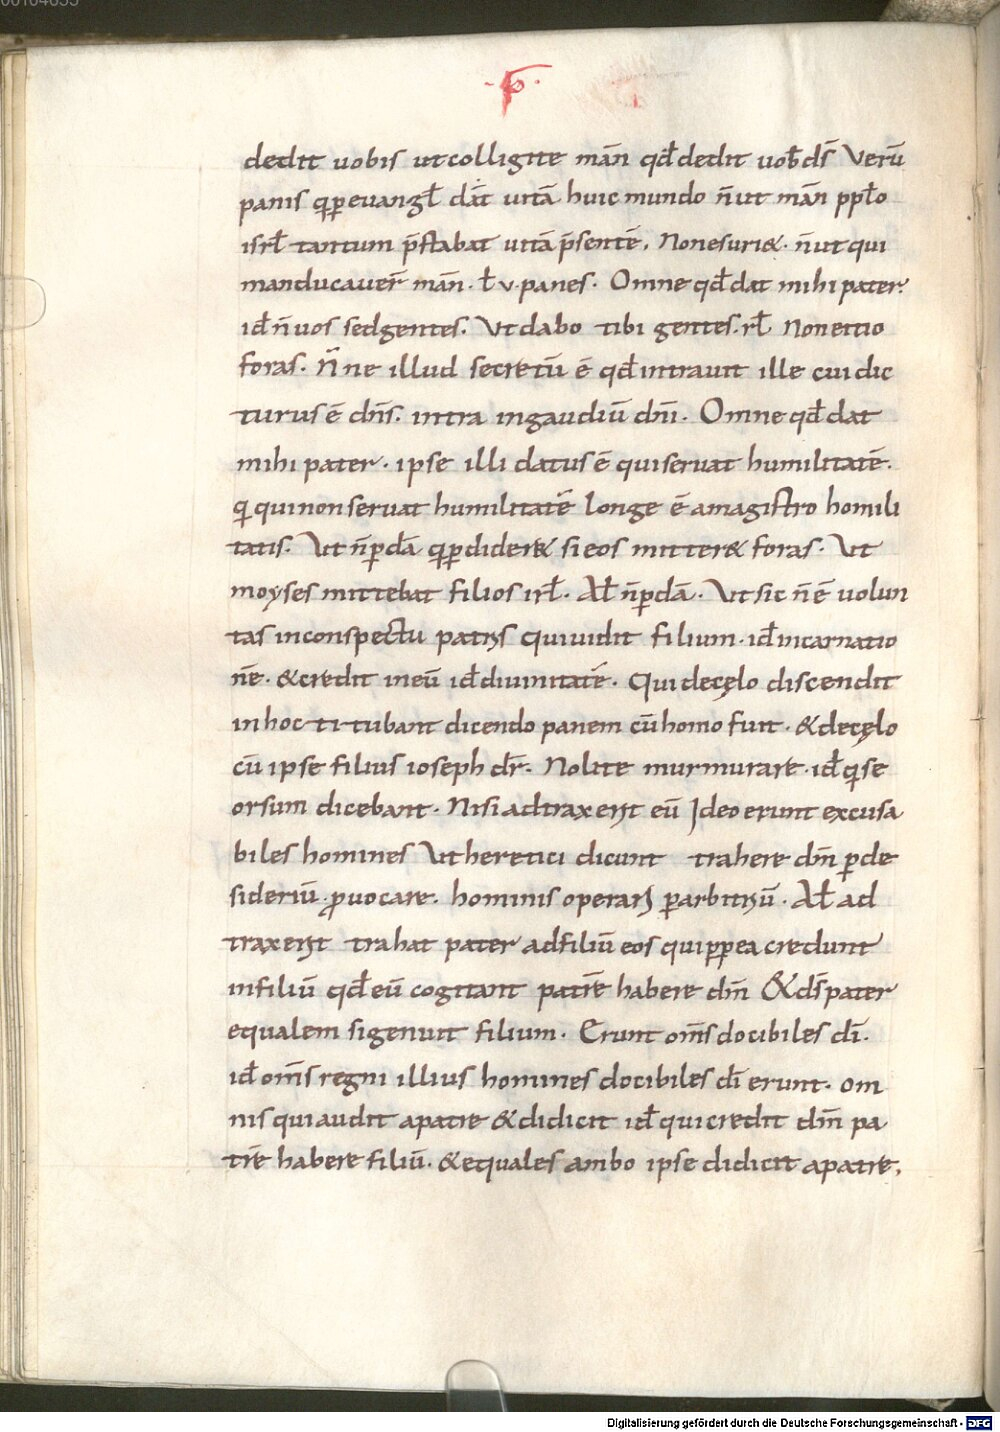 dedit uobis ut colligite mān qđ dedit uob̄ ds̄ Verū
panis q̨ ꝑ euangł dāt uitā huic mundo n̄ ut mān ppło
isrł tantum p̄stabat uitā p̄sentē. Non esuri&. n̄ ut qui
manducauer̄ mān. ł v. panes. Omne qđ dat mihi pater.
id̄ n̄ uos sed gentes. Ut dabo tibi gentes. rł Non eitio
foras. N̄ ne illud secretū ē qđ intrauit ille cui dic
turus ē dn̄s. intra in gaudiū dn̄i. Omne qđ dat
mihi pater. ipse illi datus ē qui seruat humilitatē.
q̨ qui non seruat humilitatē longe ē a magistro homili
tatis. Ut n̄ ꝑdā q̨ ꝑdider& si eos mitter& foras. Ut
moyses mittebat filios irł. Ał n̄ ꝑdā. Ut sic n̄ ē uolun
tas in conspectu patris qui uidit filium. id̄ incarnatio
nē. & credit in eū id̄ diuinitatē. Qui de cęlo discendit
in hoc titubant dicendo panem cū homo fuit. & de cęlo
cū ipse filius ioseph dr̄. Nolite murmurare. id̄ q̨ se
orsum dicebant. Nisi adtraxerit eū Ideo erunt excusa
biles homines Ut heretici dicunt trahere dm̄ ꝑ de
siderium ꝓuocare. hominis operari ꝑ arbitriū. Ał ad
traxerit trahat pater ad filiū eos qui ꝓpea credunt
in filiū qđ eū cogitant patrē habere dm̄ & ds̄ pater
equalem si genuit filium. Erunt om̄s docibiles dī.
id̄ om̄s regni illius homines docibiles dī erunt. om
nis qui audit a patre & didicit id̄ qui credit dm̄ pa
trē habere filiū. & equales ambo ipse didicit a patre.
Digitalisierung gefördert durch die Deutsche Forschungsgemeinschaft - DFG